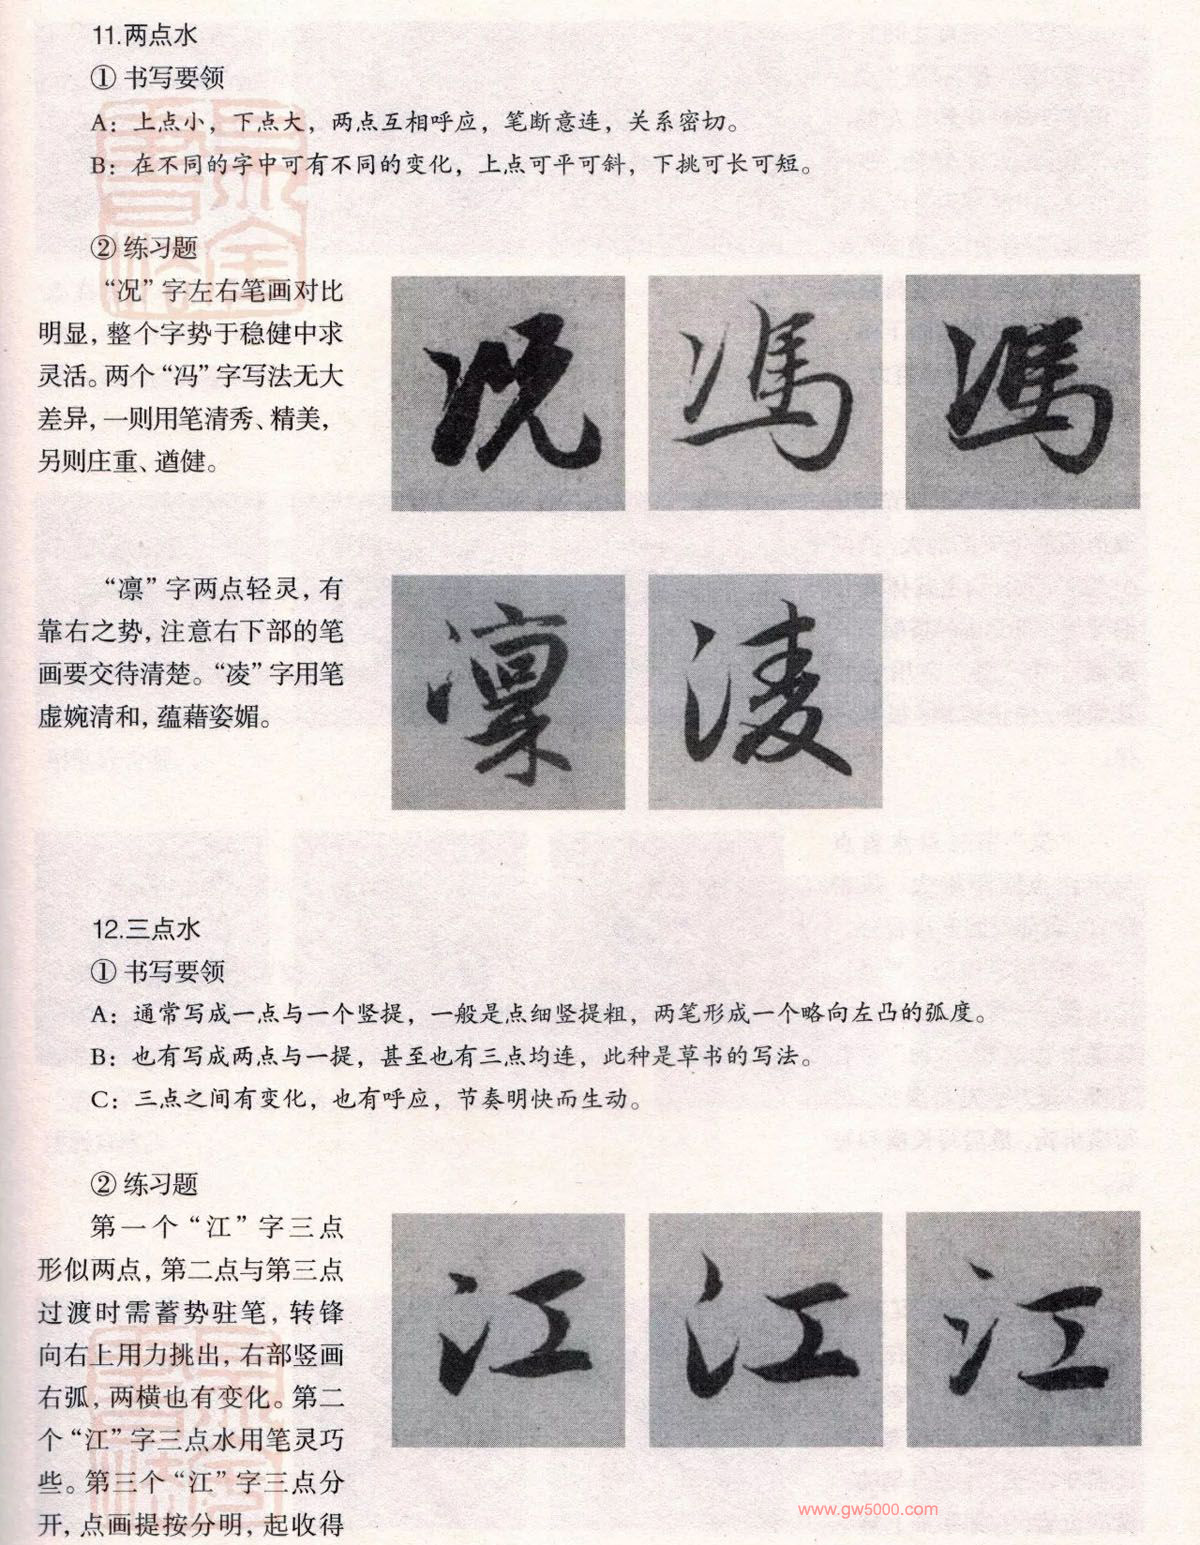 11.两点水
① 书写要领
A：上点小，下点大，两点互相呼应，笔断意连，关系密切。
B：在不同的字中可有不同的变化，上点可平可斜，下挑可长可短。
② 练习题
“况”字左右笔画对比
明显，整个字势于稳健中求
灵活。两个“冯”字写法无大
差异，一则用笔清秀、精美，
另则庄重、遒健。
况 馮 馮
“凛”字两点轻灵，有
靠右之势，注意右下部的笔
画要交待清楚。“凌”字用笔
虚婉清和，蕴藉姿媚。
凛 凌
12.三点水
① 书写要领
A：通常写成一点与一个竖提，一般是点细竖提粗，两笔形成一个略向左凸的弧度。
B：也有写成两点与一提，甚至也有三点均连，此种是草书的写法。
C：三点之间有变化，也有呼应，节奏明快而生动。
② 练习题
第一个“江”字三点
形似两点，第二点与第三点
过渡时需蓄势驻笔，转锋
向右上用力挑出，右部竖画
右弧，两横也有变化。第二
个“江”字三点水用笔灵巧
些。第三个“江”字三点分
开，点画提按分明，起收得
江 江 江
www.gw5000.com